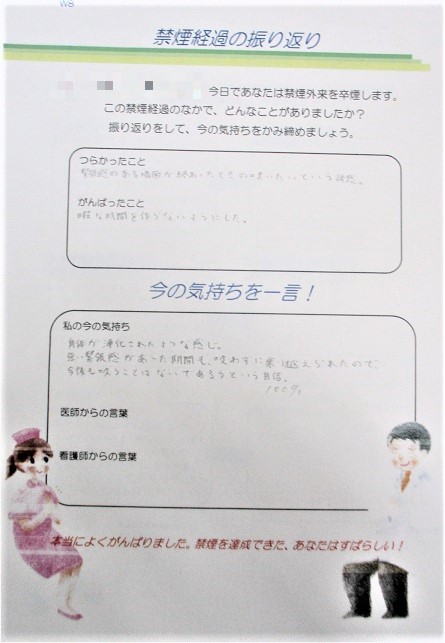 W8
禁煙経過の振り返り
今日であなたは禁煙外来を卒煙します。
この禁煙経過のなかで、どんなことがありましたか？
振り返りをして、今の気持ちをかみ締めましょう。
つらかったこと
緊張感のある場面が終わったときの吸いたいという誘惑。
がんばったこと
暇な時間を作らないようにした。
今の気持ちを一言！
私の今の気持ち
身体が浄化されたような感じ。
長い緊張感があった期間も、吸わずに乗り越えられたので、
今後も吸うことはないであろうという自信。
100%
医師からの言葉
看護師からの言葉
本当によくがんばりました。禁煙を達成できた、あなたはすばらしい！